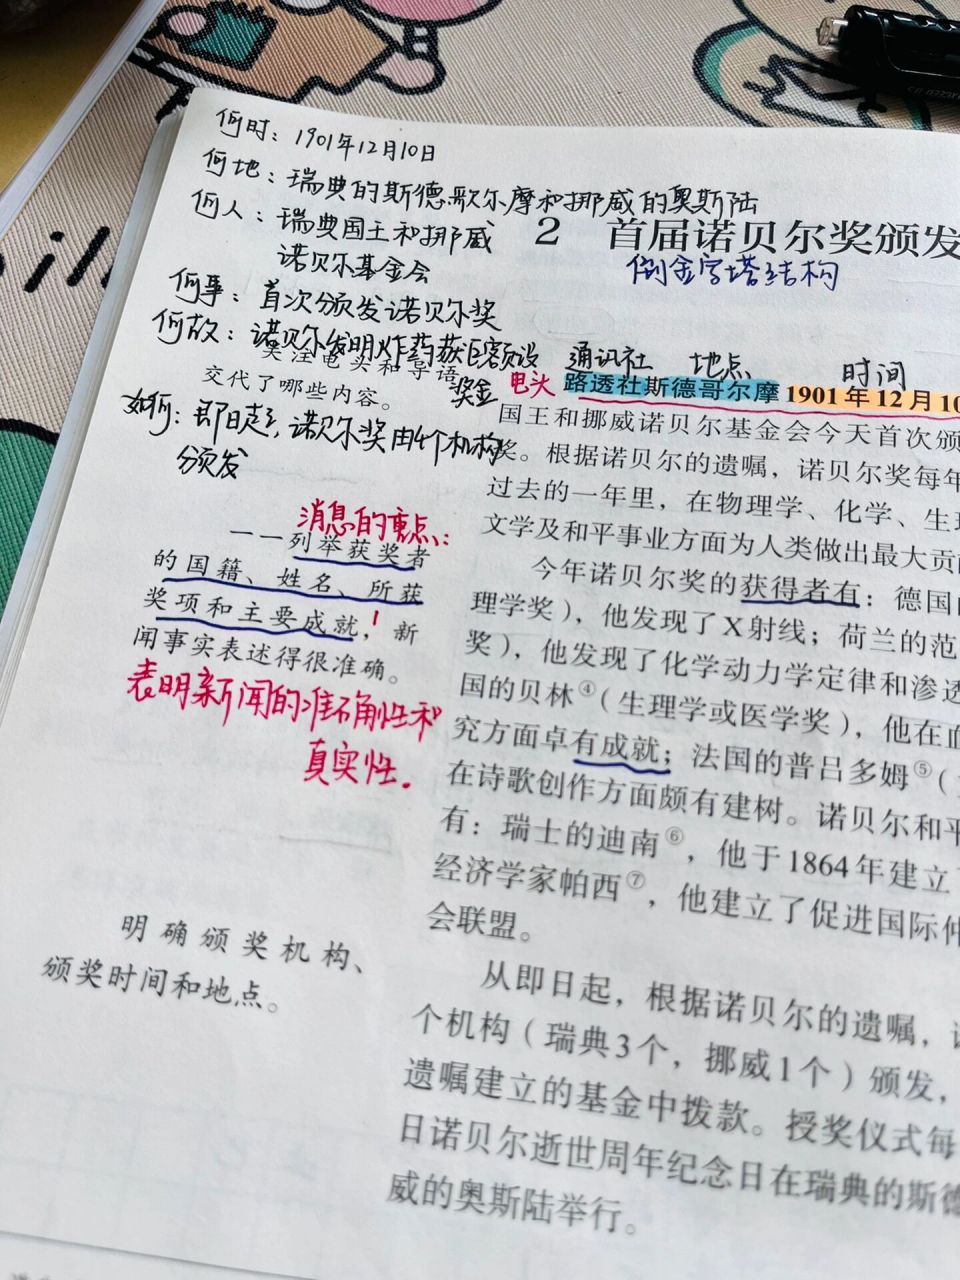 何时：1901年12月10日
何地：瑞典的斯德歌尔摩和挪威的奥斯陆
何人：瑞典国王和挪威
诺贝尔基金会
何事：首次颁发诺贝尔奖
何故：诺贝尔发明炸药获巨额设
奖金
如何：即日起，诺贝尔奖由4个机构
颁发
2 首届诺贝尔奖颁发
倒金字塔结构
关注电头和导语
交代了哪些内容。
通讯社 地点 时间
电头
路透社斯德哥尔摩1901年12月10
国王和挪威诺贝尔基金会今天首次颁
奖。根据诺贝尔的遗嘱，诺贝尔奖每年
过去的一年里，在物理学、化学、生理
文学及和平事业方面为人类做出最大贡
消息的重点：
——列举获奖者
的国籍、姓名、所获
奖项和主要成就，新
闻事实表述得很准确。
表明新闻的准确性和
真实性.
今年诺贝尔奖的获得者有：德国
理学奖），他发现了X射线；荷兰的范
奖），他发现了化学动力学定律和渗透
国的贝林④（生理学或医学奖），他在血
究方面卓有成就；法国的普吕多姆⑤（
在诗歌创作方面颇有建树。诺贝尔和平
有：瑞士的迪南⑥，他于1864年建立
经济学家帕西⑦，他建立了促进国际仲
会联盟。
明确颁奖机构、
颁奖时间和地点。
从即日起，根据诺贝尔的遗嘱，
个机构（瑞典3个，挪威1个）颁发，
遗嘱建立的基金中拨款。授奖仪式每
日诺贝尔逝世周年纪念日在瑞典的斯德
威的奥斯陆举行。